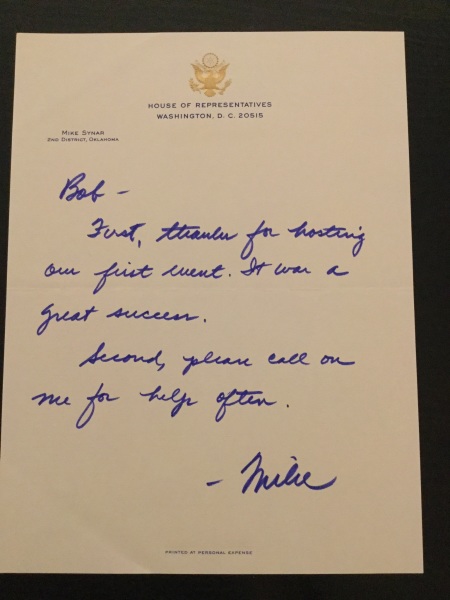 HOUSE OF REPRESENTATIVES
WASHINGTON, D. C. 20515
MIKE SYNAR
2ND DISTRICT, OKLAHOMA
Bob -
First, thanks for hosting
our first event. It was a
great success.
Second, please call on
me for help often.
- Mike
PRINTED AT PERSONAL EXPENSE